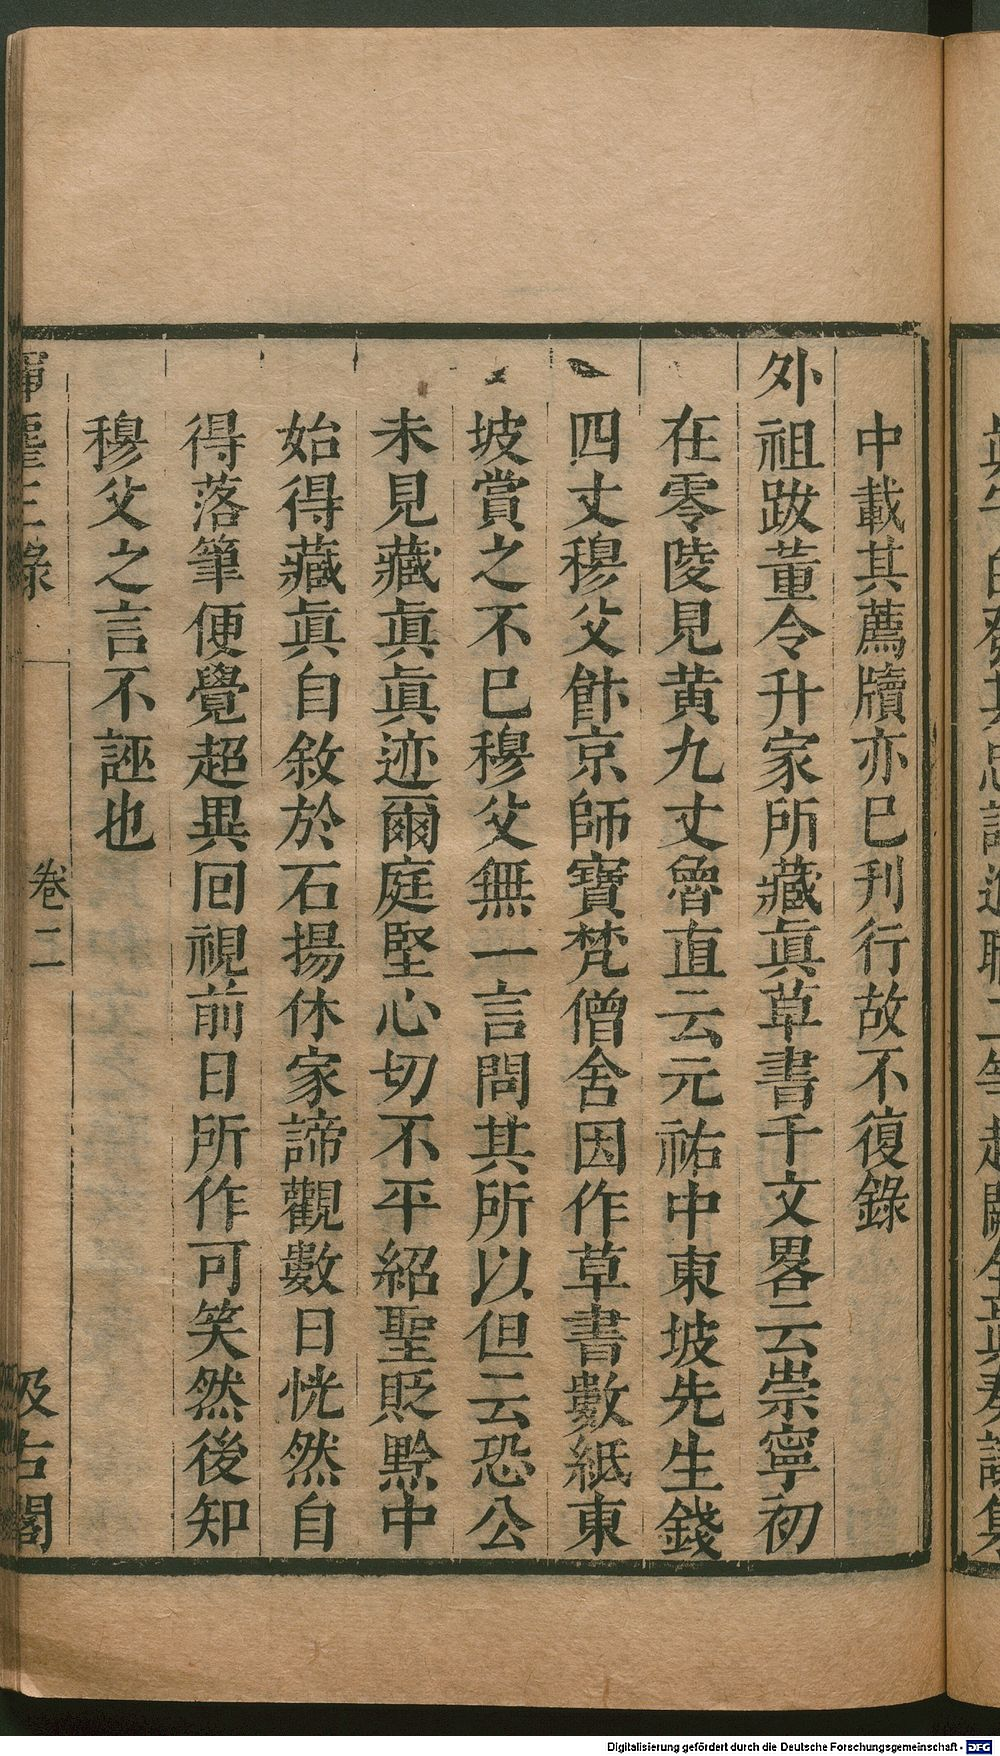 中載其薦牘亦巳刊行故不復錄
外祖跋董令升家所藏眞草書千文畧云崇寧初
在零陵見黄九丈魯直云元祐中東坡先生錢
四丈穆父飰京師寶梵僧舍因作草書數紙東
坡賞之不巳穆父無一言問其所以但云恐公
未見藏眞眞迹爾庭堅心切不平紹聖貶黔中
始得藏眞自敘於石揚休家諦觀數日恍然自
得落筆便覺超異囘視前日所作可笑然後知
穆父之言不誣也
揮麈三錄
卷二
汲古閣
Digitalisierung gefördert durch die Deutsche Forschungsgemeinschaft - DFG